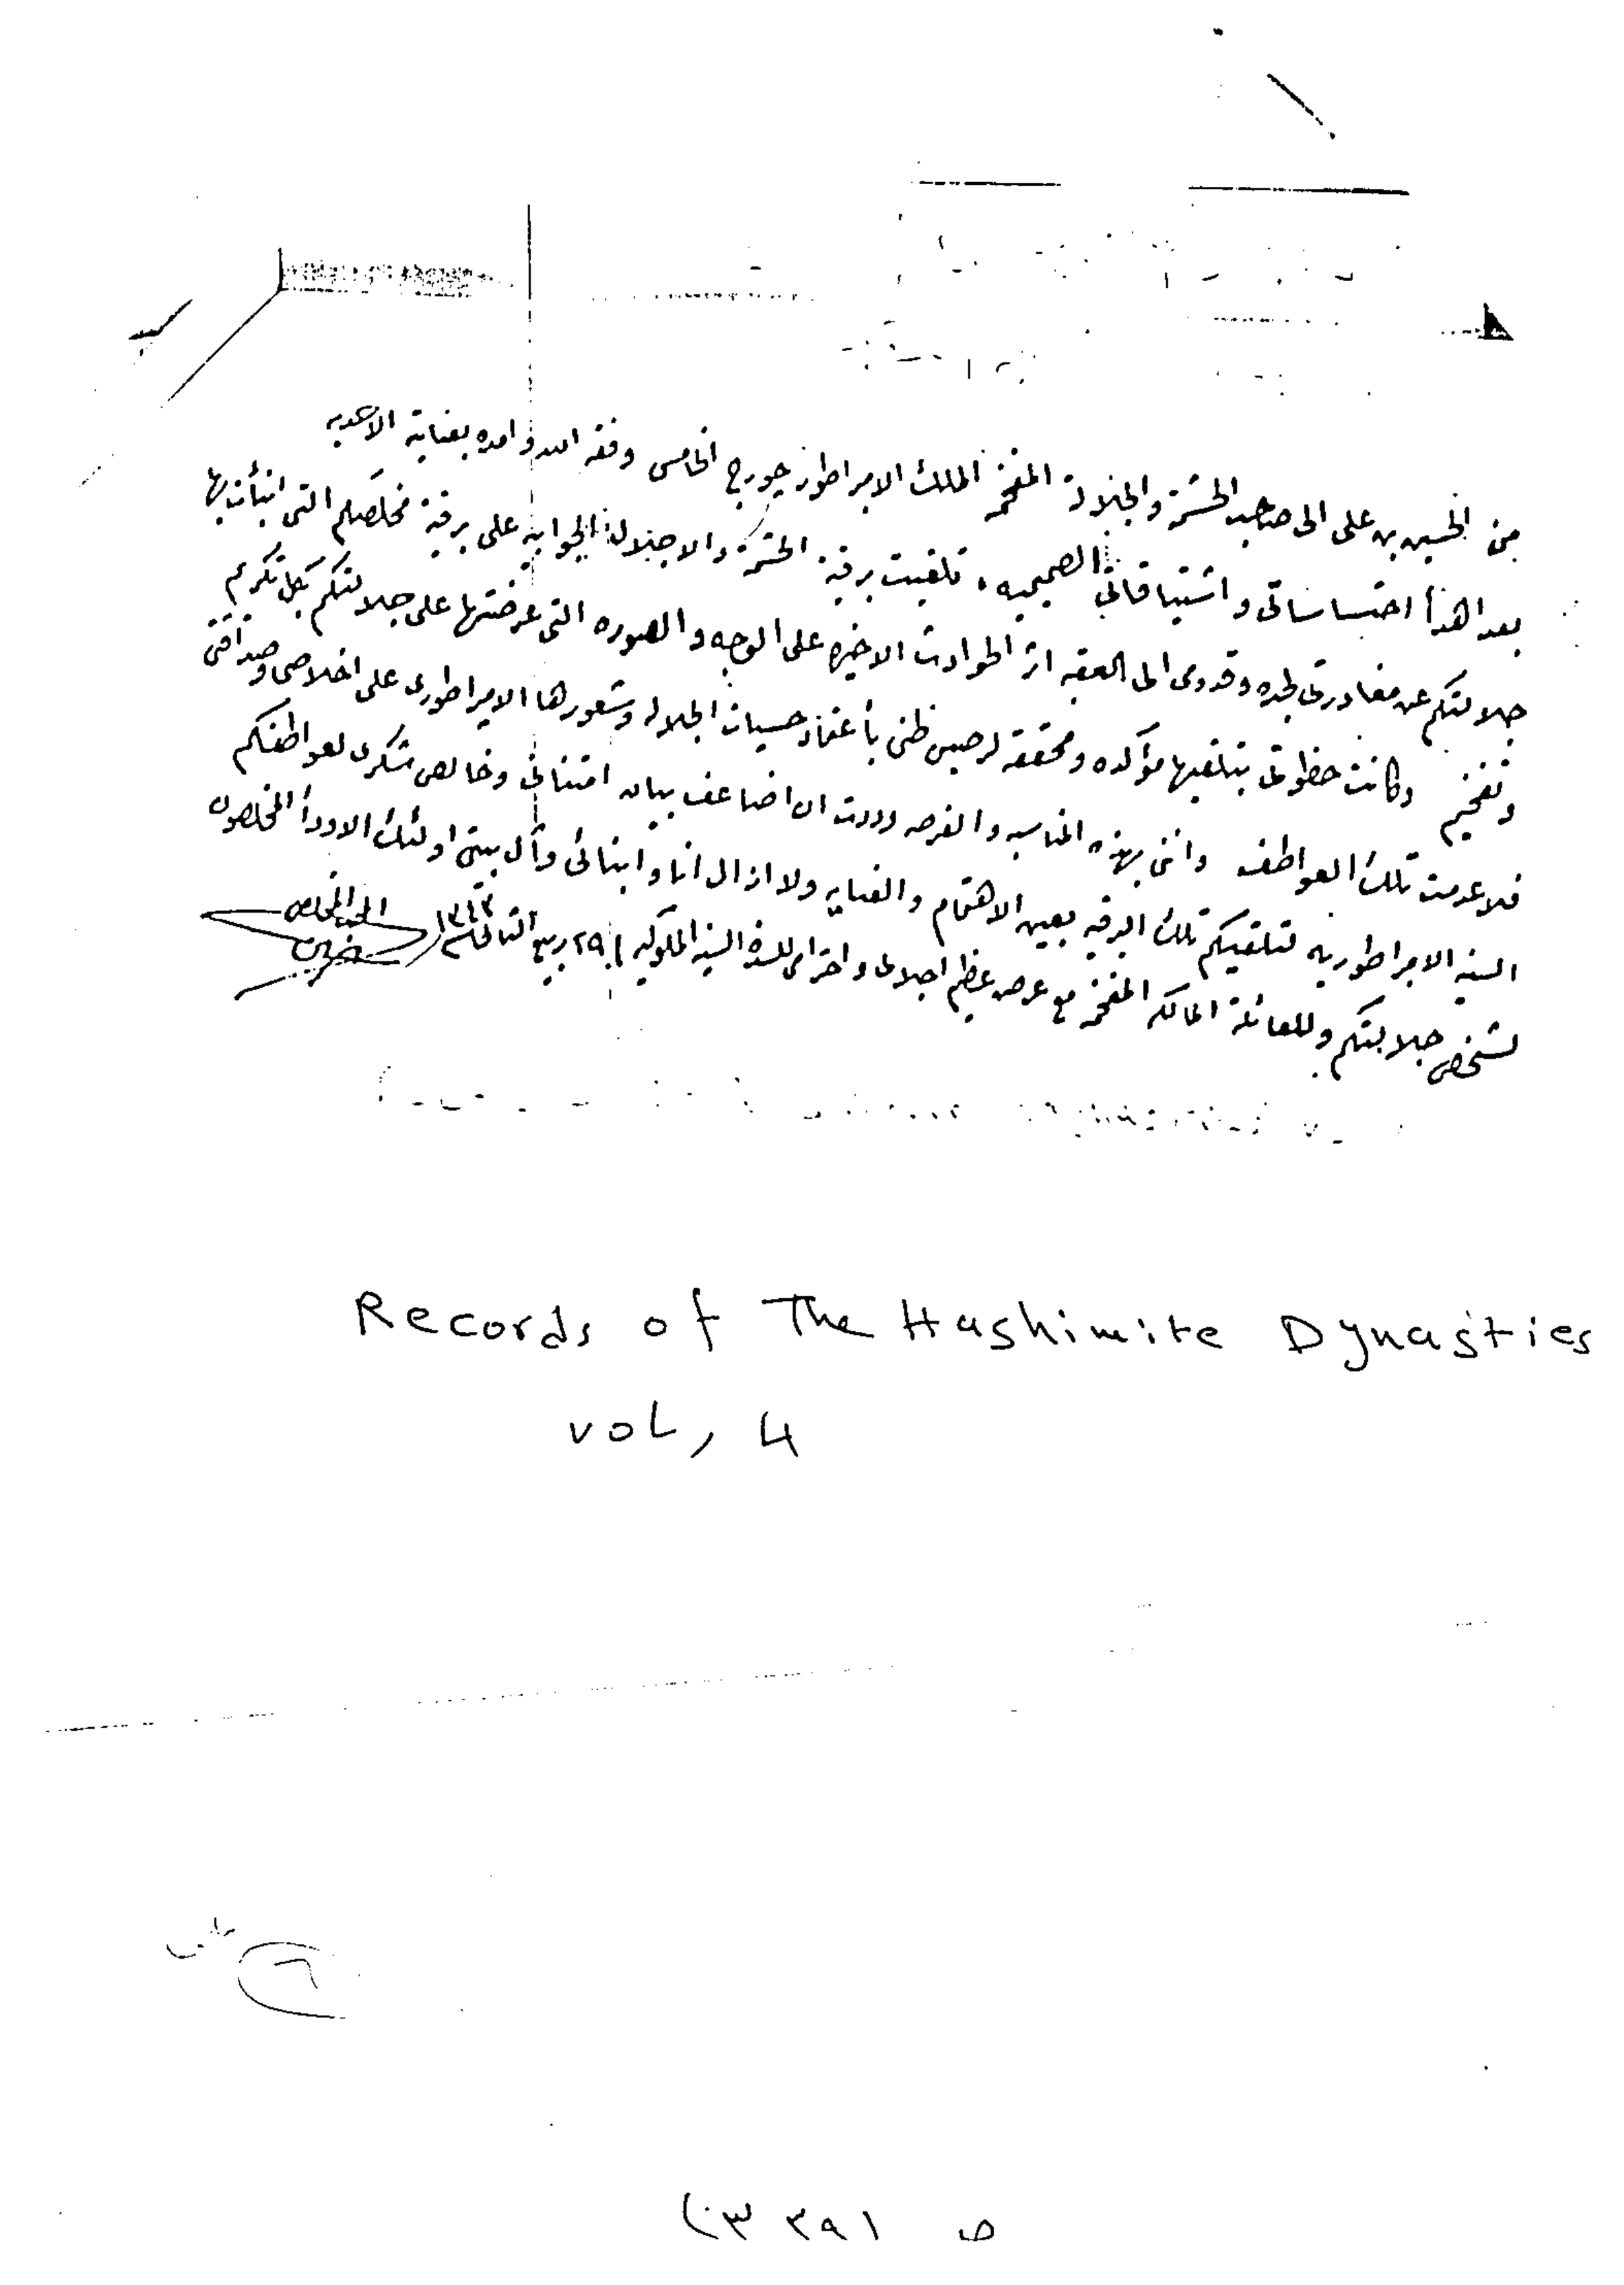 من الحسين بن على الى صاحب الحشمة والجلالة المفخم الملك الامبراطور جورج الخامس وفقه الله وامده بعنايته الاحديه
بعد اهداأ احتساساتى واشتياقاتى الصميميه ، تلقيت برقية الحشمة والاجلال الجوابيه على برقية مخلصكم التى انبأت بها
جلالتكم عن مغادرتى لجده وقدومى الى العقبه اثر الحوادث الاخيره على الوجه والصوره التى عرضتها على جلالتكم بكل تكريم
وتفخيم وكانت حظوتى بتلقيها مؤكده ومحققه لرصيص ظنى بأعتماد حسيات الجلاله وشعورها الامبراطورى على اخلاصى وصداقتى
فلا عدمت تلك العواطف وانى بهذه المناسبه والفرصه وددت ان اضاعف بيان امتنانى وخالص شكرى لعواطفكم
السنيه الامبراطوريه لتلقيكم تلك البرقيه بعين الاهتمام والعنايه ولا ازال انا وابنائى وآل بيتى اولئك الاودأ المخلصون
لشخص جلالتكم وللعائلة المالكه المفخمه مع عرض عظيم اجلالى واحترامى للسدة السنيه الملوكيه ٢٩ ربيع الثانى ١٣٤٣
المحب المخلص
حسين
Records of The Hashimite Dynasties
vol, 4
٦
ص ٣٩١